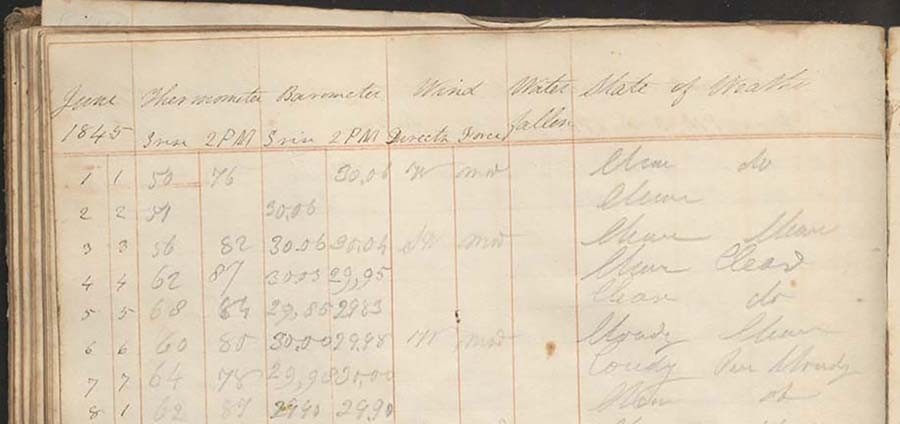 June Thermometer Barometer Wind Water State of Weathe
1845 Srise 2PM Srise 2PM Directn Force fallen
1 1 50 76 30,06 W mod Clear do
2 2 30.06 Clear
3 3 56 82 30.06 30.04 SW mod Clear Clear
4 4 62 87 30.03 29,95 Clear Clear
5 5 68 29,85 2983 Clear do
6 6 60 80 30.00 29.98 W mod Cloudy Clear
7 7 64 78 29,98 30,00 Cloudy Cloudy
8 1 62 2990 29.90 do